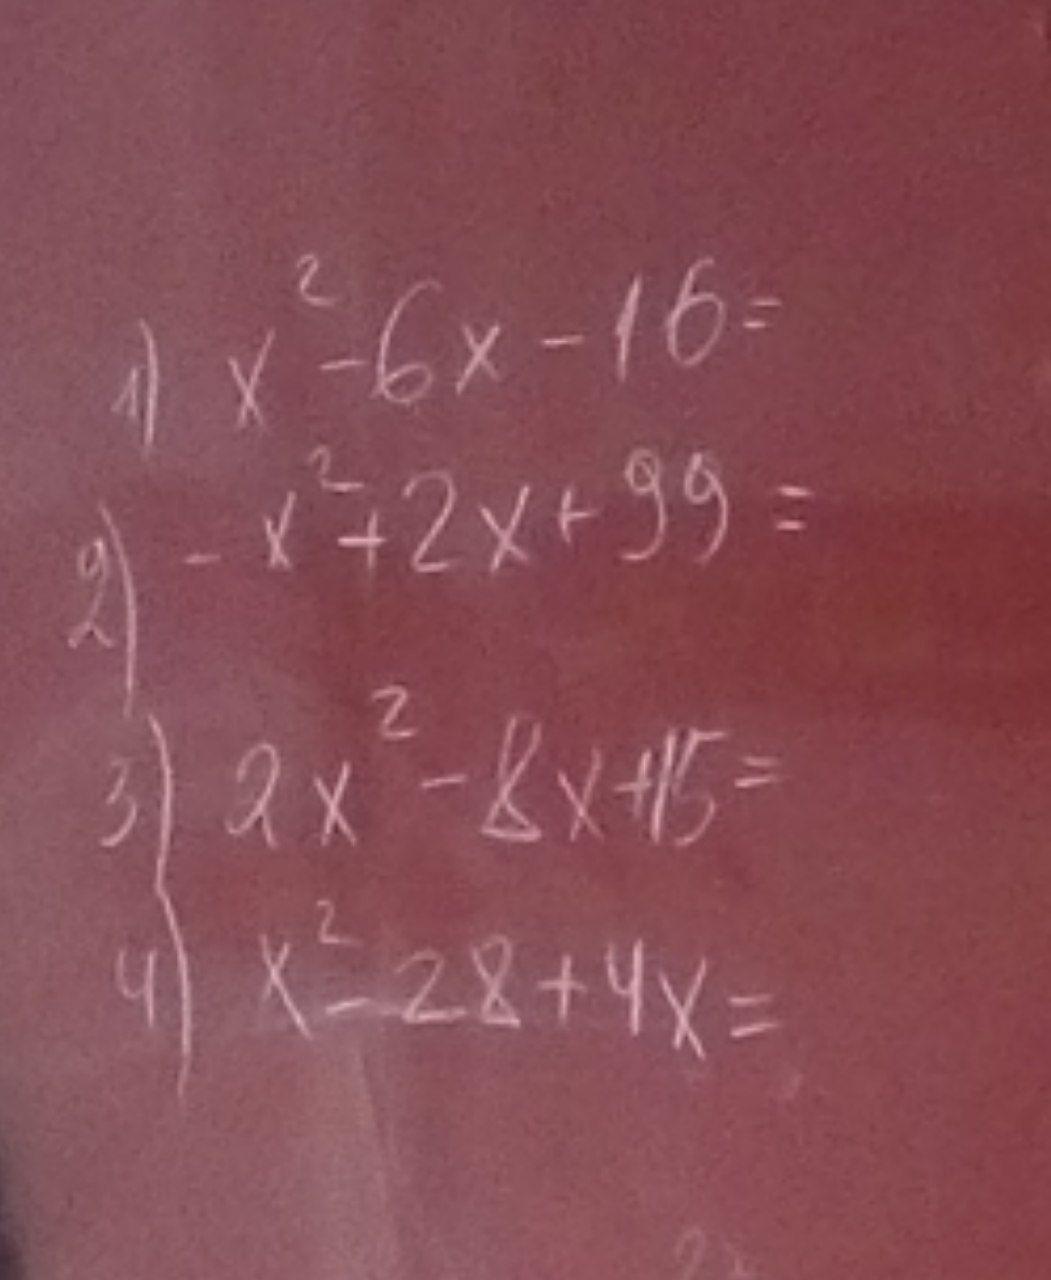 1) x² - 6x - 16 =
2) - x² + 2x + 99 =
3) 2x² - 8x + 15 =
4) x² - 28 + 4x =